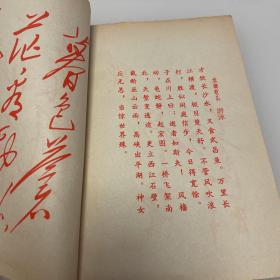 水调歌头 游泳
才饮长沙水，又食武昌鱼。万里长
江横渡，极目楚天舒。不管风吹浪
打，胜似闲庭信步，今日得宽馀。
子在川上曰：逝者如斯夫！ 风樯
动，龟蛇静，起宏图。一桥飞架南
北，天堑变通途。更立西江石壁，
截断巫山云雨，高峡出平湖。神女
应无恙，当惊世界殊。
暮色苍
茫看劲